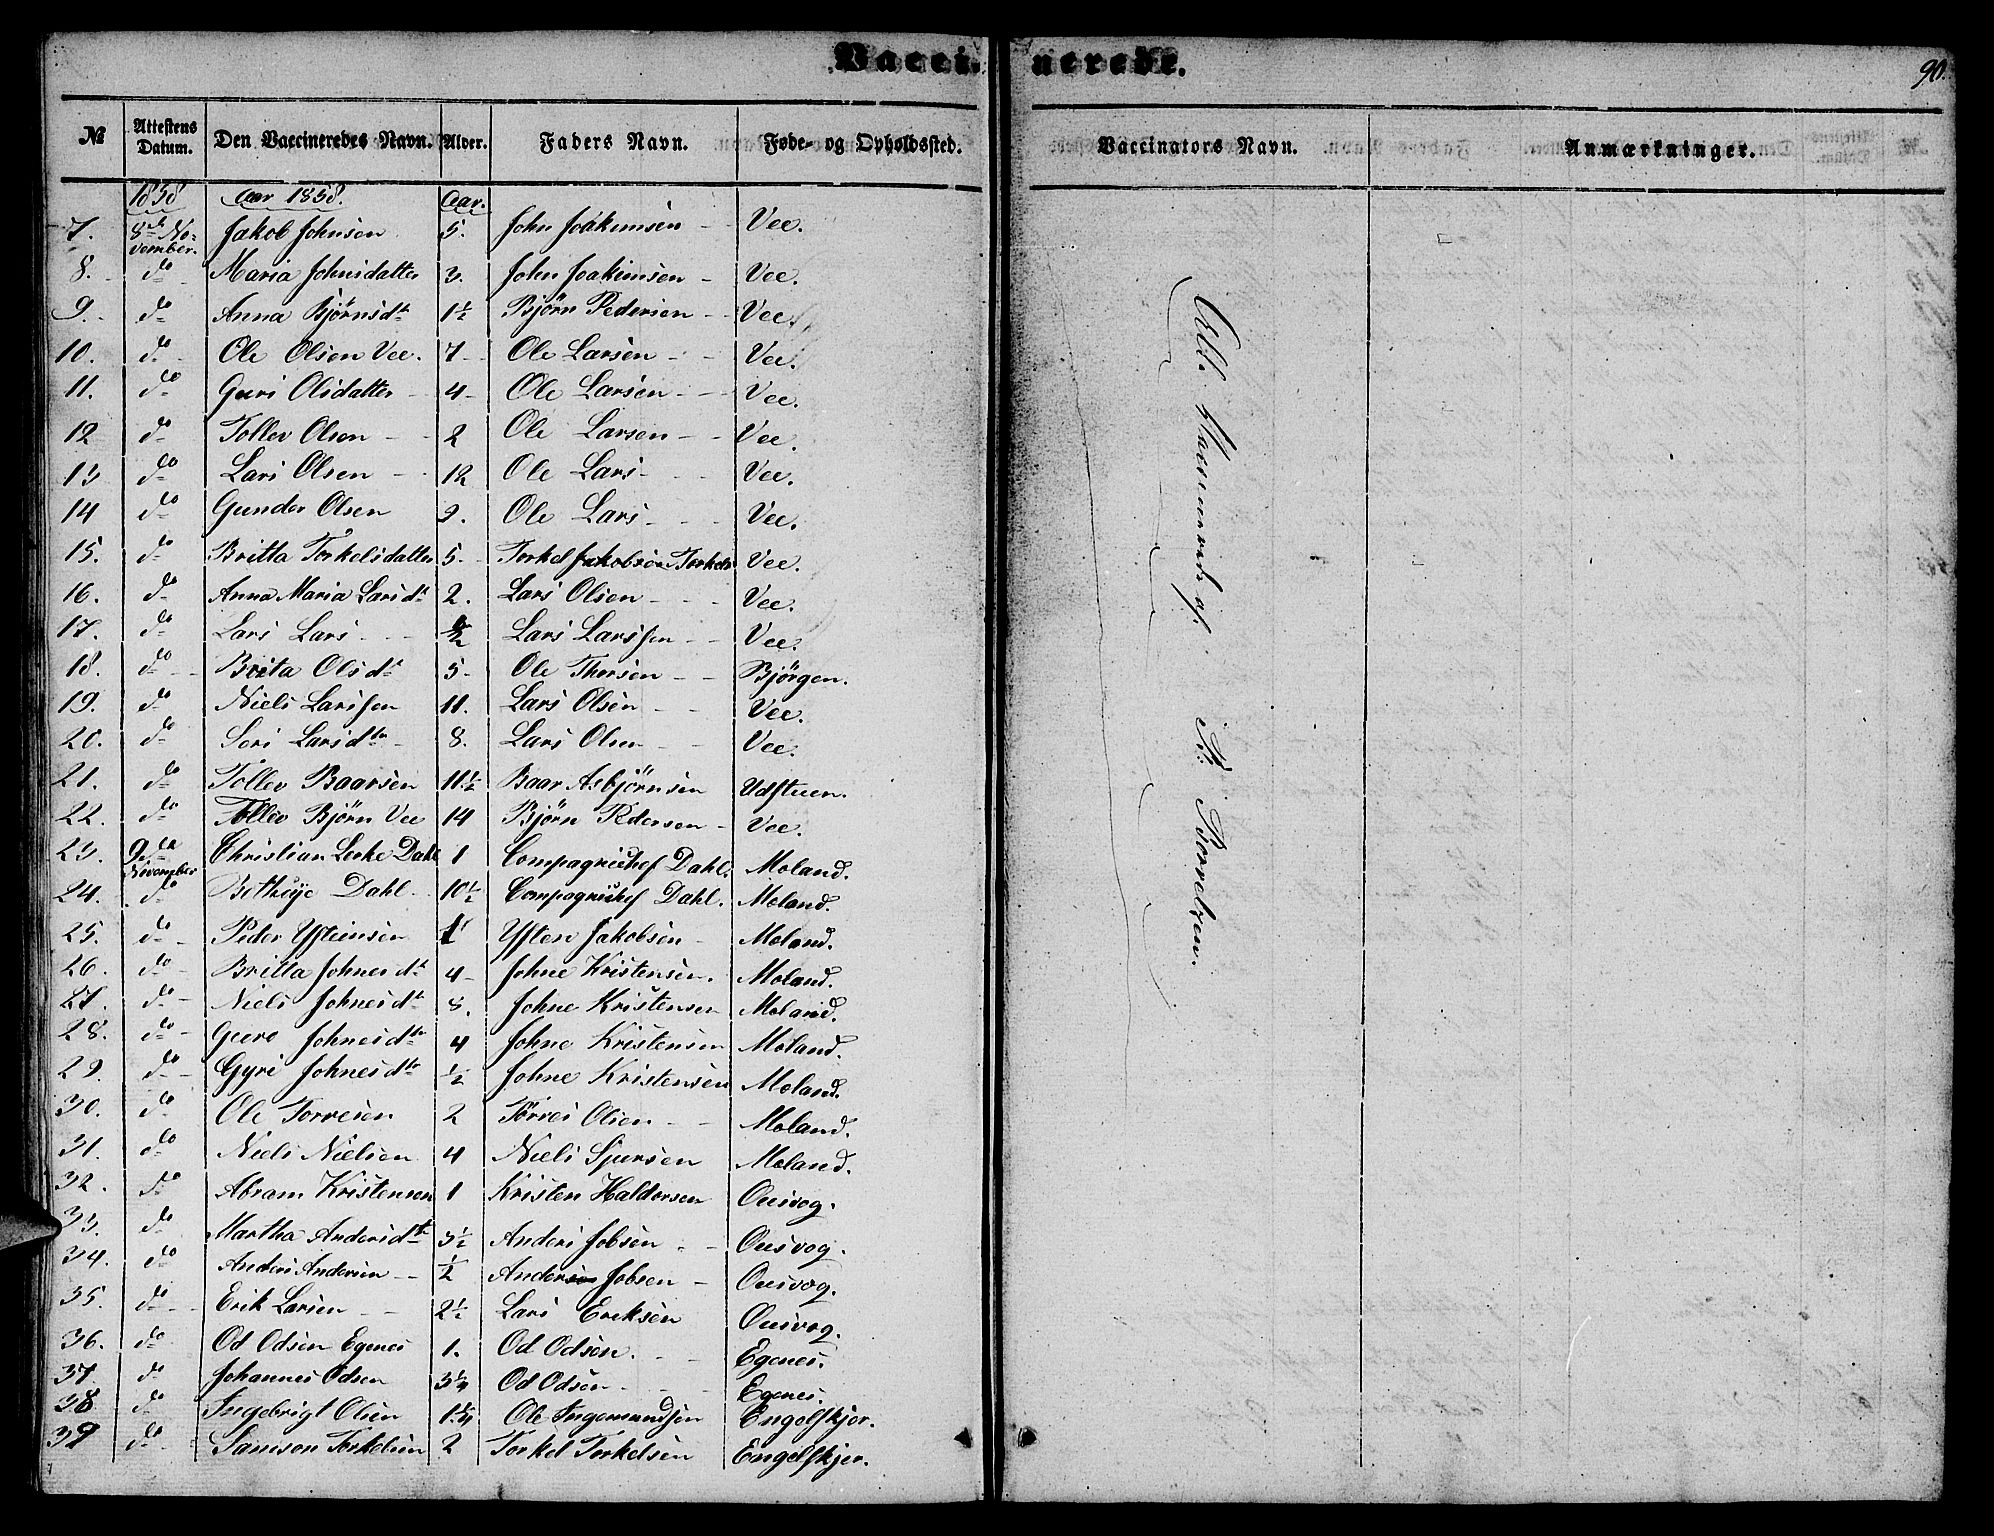 Vacci- nerede.
90.
№ Attestens Datum. Den Vaccineredes Navn. Alder. Faders Navn. Føde- og Opholdssted. Vaccinators Navn. Anmærkninger.
1858 Aar 1858. Aar.
7. 8de November. Jakob Johnsen 5. John Joakimsen Vee.
8. do Maria Johnsdatter 3. John Joakimsen Vee.
9. do Anna Bjørnsdt 1½ Bjørn Pedersen Vee.
10. do Ole Olsen Vee. 7 Ole Larsen Vee.
11. do Guri Olsdatter 4 Ole Larsen Vee.
12 do Tollev Olsen 2 Ole Larsen Vee.
13 do Lars Olsen 12 Ole Lars Vee.
14 do Gunder Olsen 9. Ole Lars Vee.
15. do Britta Torkelsdatter 5. Torkel Jakobsen Torkels Vee.
16. do Anna Maria Larsdt 2. Lars Olsen Vee.
17. do Lars Lars ½ Lars Larssen Vee.
18. do Brita Olsdt 5. Ole Thorsen Bjørgen.
19. do Niels Larssen 11. Lars Olsen Vee.
20. do Seri Larsdtr 8. Lars Olsen Vee.
21. do Tollev Baarsen 11½ Baar Asbjørnsen Udstuen.
22. do Tollev Bjørn Vee 14 Bjørn Pedersen Vee.
23. 9de November Christian Lerke Dahl 1 Compagniechef Dahl. Moland.
24. do Bethzye Dahl 10½ Compagniechef Dahl. Moland.
25. do Peder Ysteinsen 1 Ysten Jakobsen Moland.
26. do Britta Johnesdt 4 Johne Kristensen. Moland.
27. do Niels Johnesdt 8. Johne Kristensen Moland.
28. do Guro Johnesdtr 4 Johne Kristensen Moland.
29. do Gyri Johnesdtr ½ Johne Kristensen Moland.
30. do Ole Torresen 2 Tørres Olsen Moland.
31. do Niels Nielsen 4 Niels Sjursen Moland.
32. do Abram Kristensen 1 Kristen Haldorsen Ousvog.
33. do Martha Andersdt 3½ Anders Jobsen Ousvog.
34. do Anders Andersen ½ Anders Jobsen Ousvog.
35. do Erik Larsen 2½ Lars Eriksen Ousvog.
36. do Od Odsen Egenes 1. Od Odsen. Egenes.
37. do Johannes Odsen 3¼ Od Odsen Egenes.
38 do Ingebrigt Olsen 1¼ Ole Ingemundsen Engelskjør.
39 do Samson Torkelsen 2 Torkel Torkelsen Engelskjer.
Alle Vaccinerede af